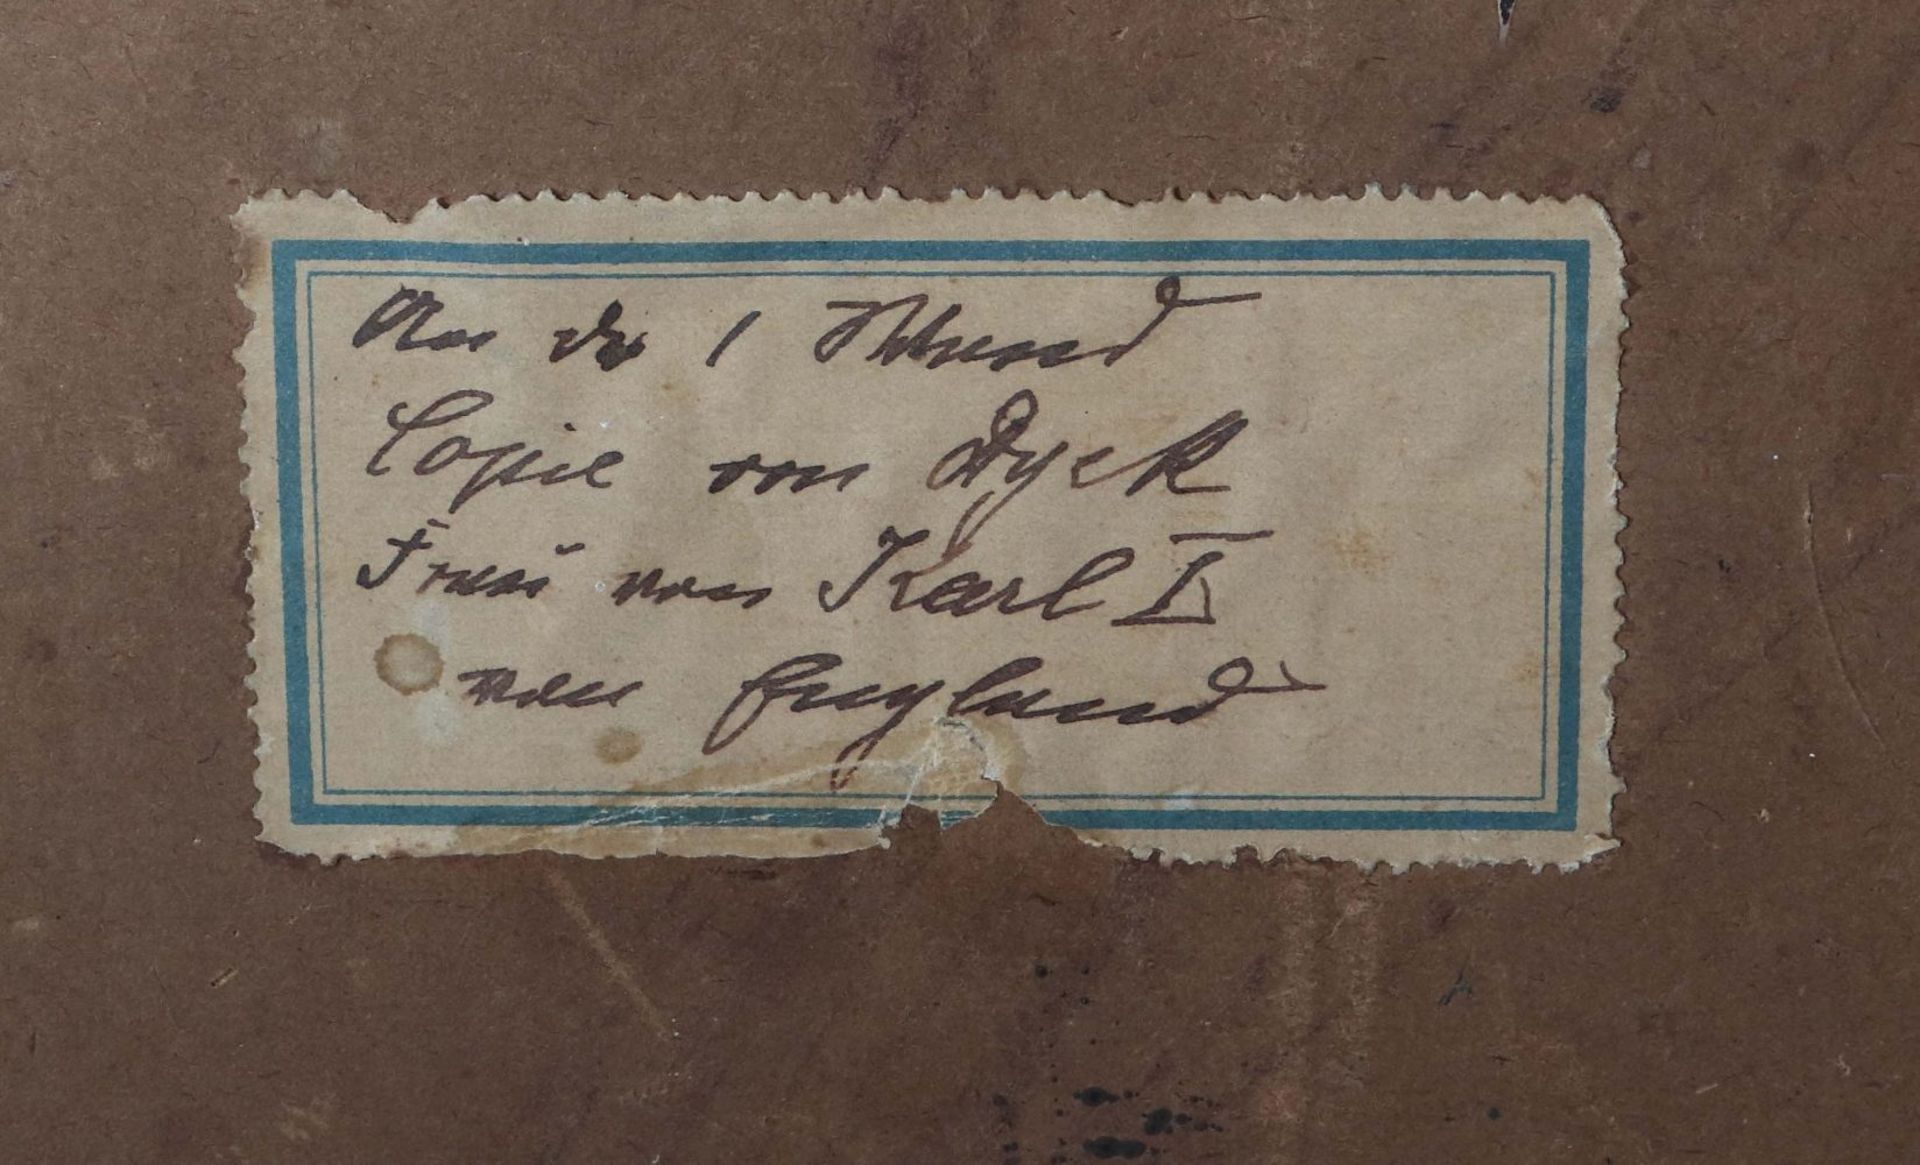 An der 1 Wand
Copie von Dyck
Frau von Karl I
von England